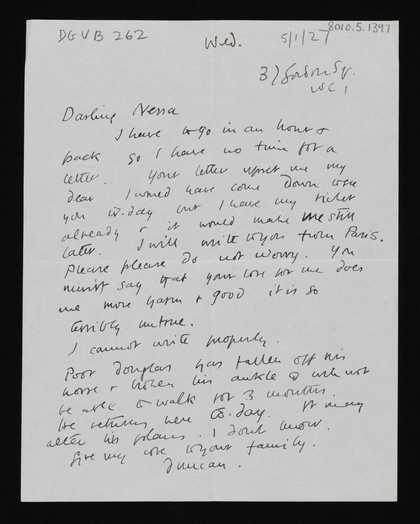 DGVB 262
8010.5.1397
Wed.
5/1/27
37 Gordon Sq.
WC1
Darling Nessa
I have to go in an hour &
pack so I have no time for a
letter. Your letter upset me my
dear I would have come down to see
you to-day but I have my ticket
already & it would make me still
later. I will write to you from Paris.
Please please do not worry. You
musn't say that your love for me does
me more harm & good it is so
terribly untrue.
I cannot write properly.
Poor Douglas has fallen off his
horse & broken his ankle & will not
be able to walk for 3 months.
He returns here to-day. It may
alter his plans. I don't know.
Give my love to your family.
Duncan.